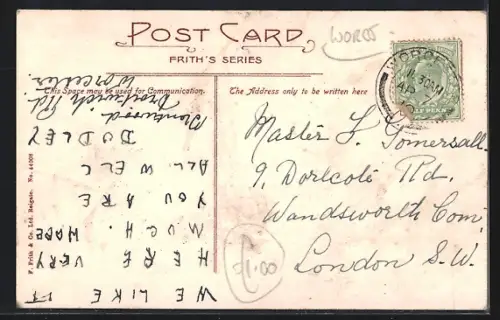 POST CARD
FRITH'S SERIES
WORCS
This Space may be used for Communication.
The Address only to be written here
WORCESTER
AP
HALFPENNY
Droitwich Rd.
Worcester
WE LIKE IT
HERE VERY
MUCH. HAPPY
YOU ARE
ALL WELL
DUDLEY
Master L. Somersall.
9, Dorlcote Rd.
Wandsworth Com.
London S.W.
£1.00
F. Frith & Co. Ltd. Reigate. No.